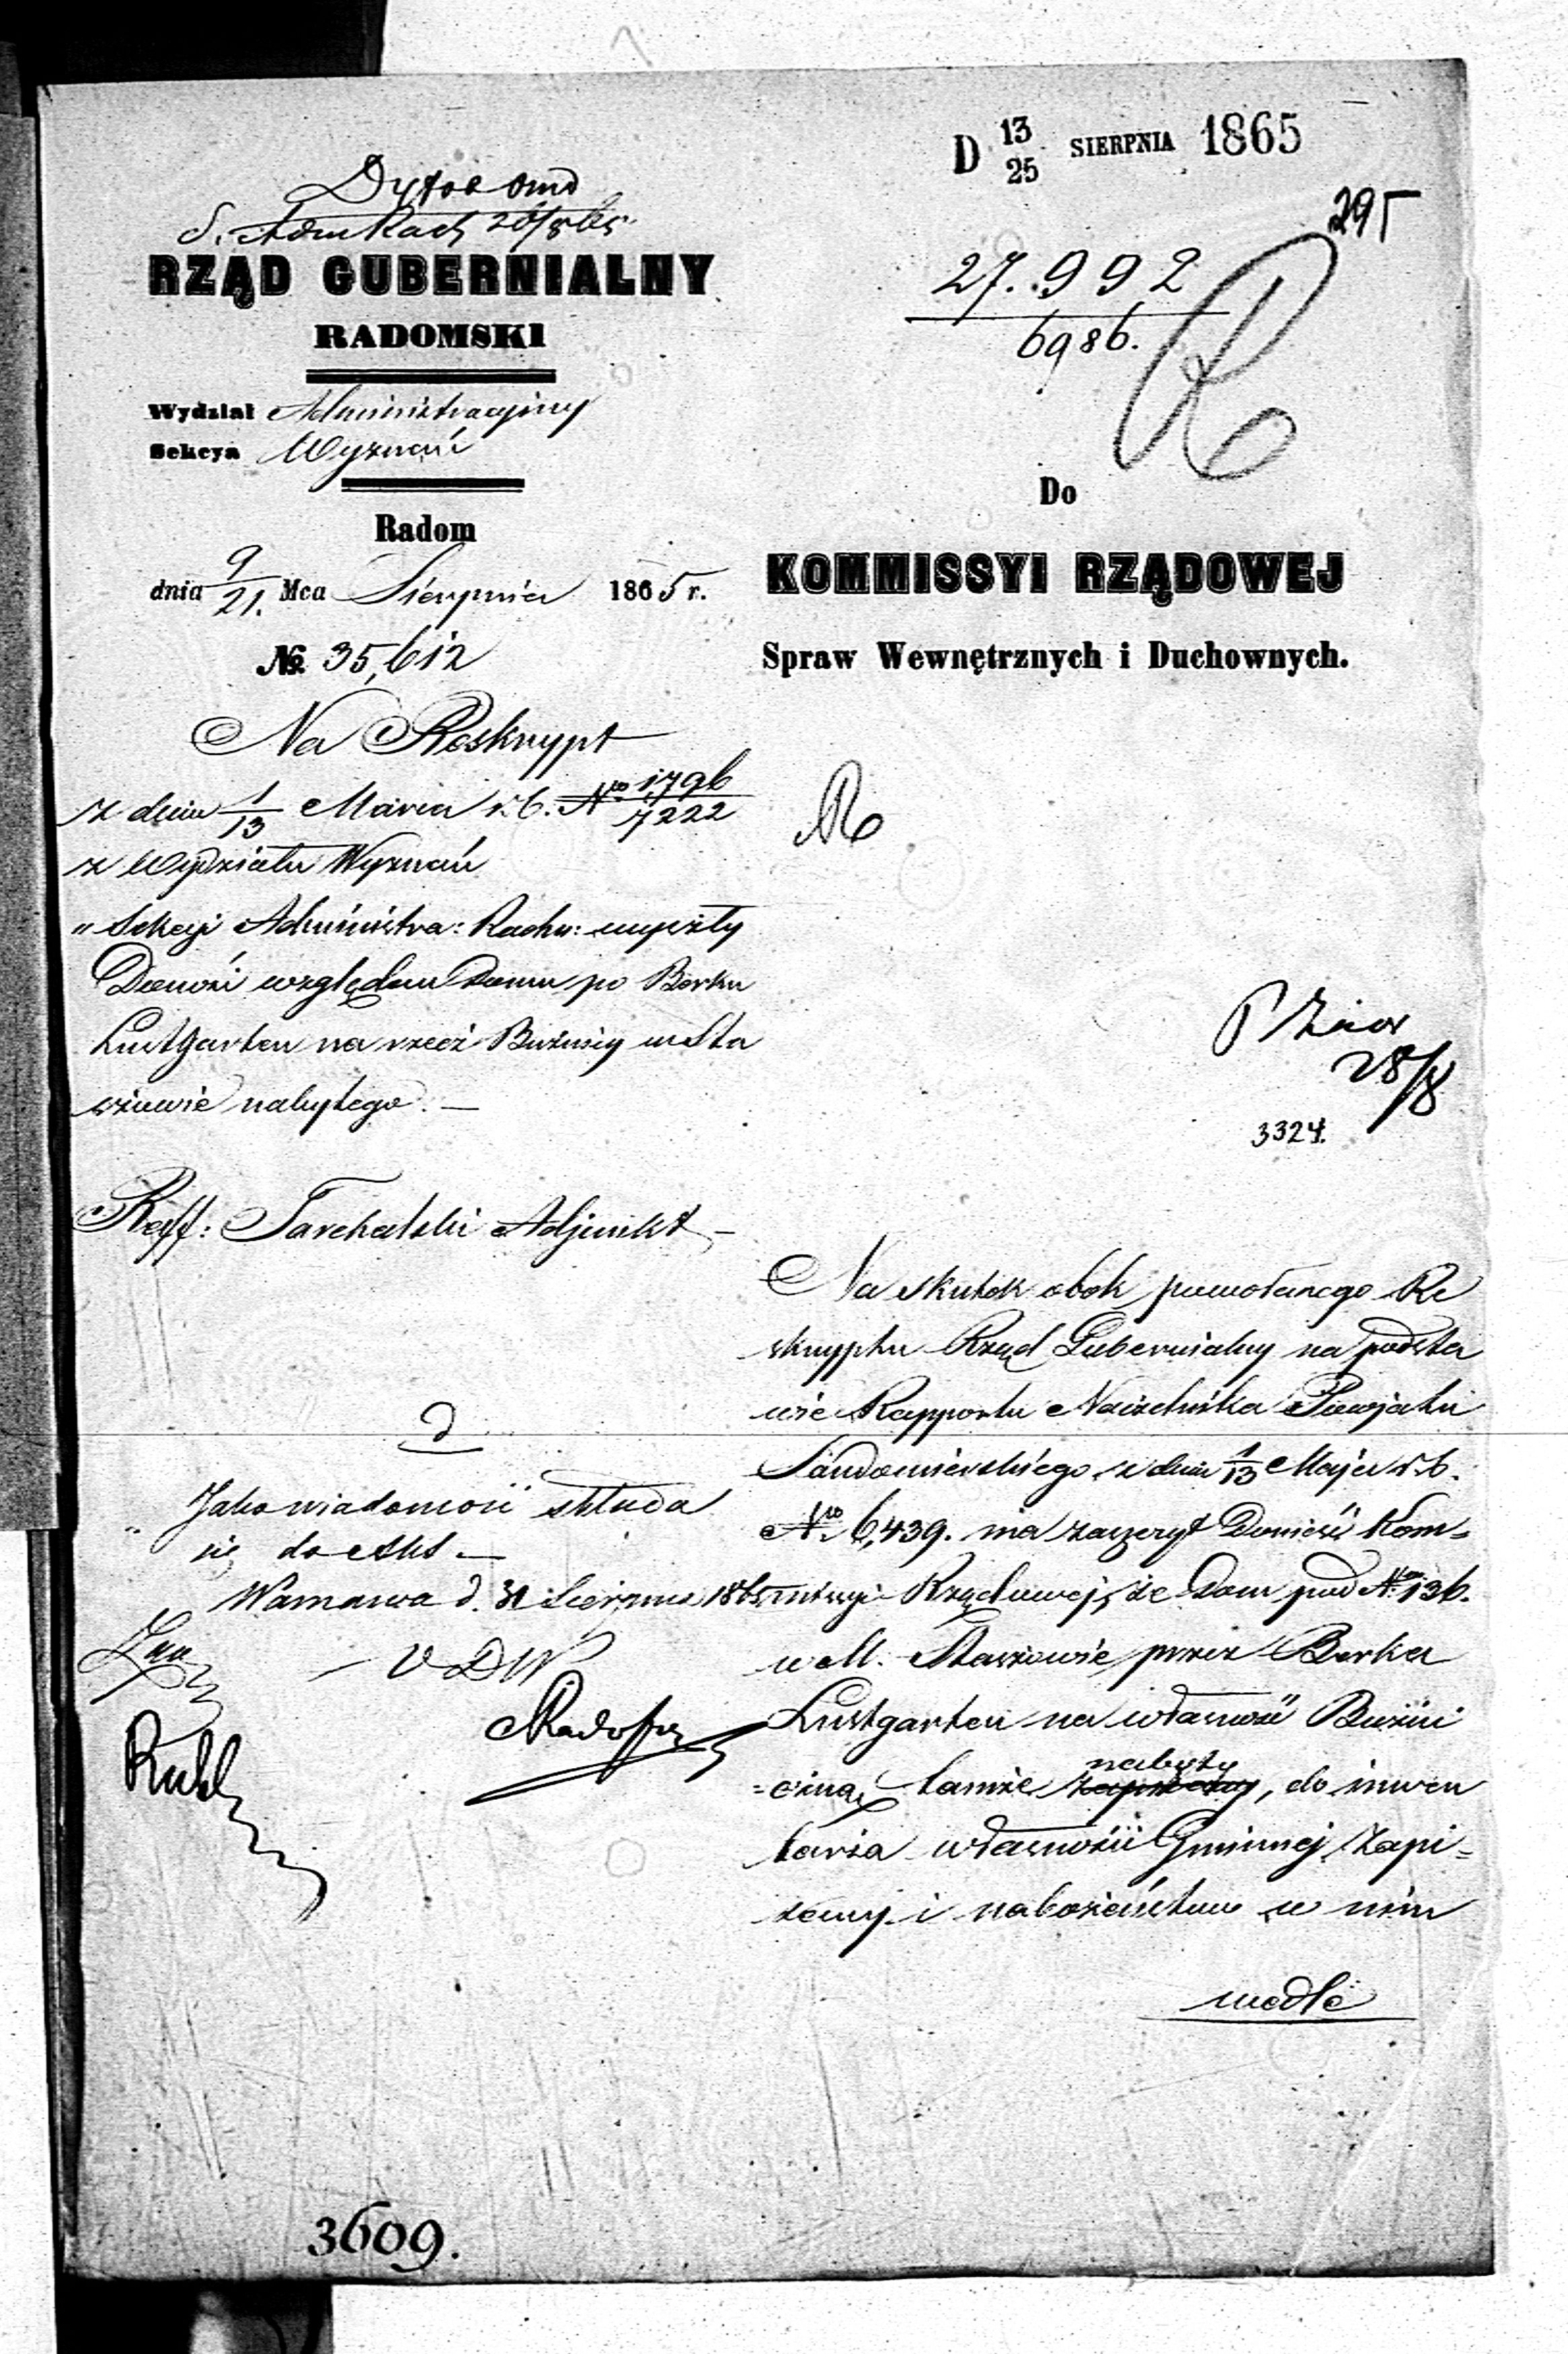 D 13/25 SIERPNIA 1865
295
S. Adm Rach 26/8 65
RZĄD GUBERNIALNY
RADOMSKI
27.992
6986.
R
Wydział Administracyjny
Sekcya Wyznań
Radom
dnia 9/21. Mca Sierpnia 1865 r.
№ 35,612
Do
KOMMISSYI RZĄDOWEJ
Spraw Wewnętrznych i Duchownych.
Na Reskrypt
z dnia 1/13 Marca r.b. No 1796/7222
z Wydziału Wyznań
„ Sekcyi Administra: Rachu: wyszły
Donosi względem Domu po Berku
Lustgarten na rzecz Bużnicy w Sta
szowie nabytego. —
R
28/8
3324.
Reff: Tarchalski Adjunkt —
Na skutek obok powołanego Re
skryptu Rząd Gubernialny na podsta
wie Rapportu Naczelnika Powiatu
Sandomierskiego z dnia 1/13 Maja r.b.
No 6,439. ma zaszczyt Donieść Kom=
missyi Rządowej, że Dom pod No 136.
w M. Staszowie przez Berka
Lustgarten na własność Bużni
=czną tamże nabyty, do inwen
tarza własności Gminnej zapi=
sany i nabożeństwo w nim
wedle
d
„ Jako wiadomość składa
się do Akt. —
Warszawa d. 31 Sierpnia 1865
V DW
3609.